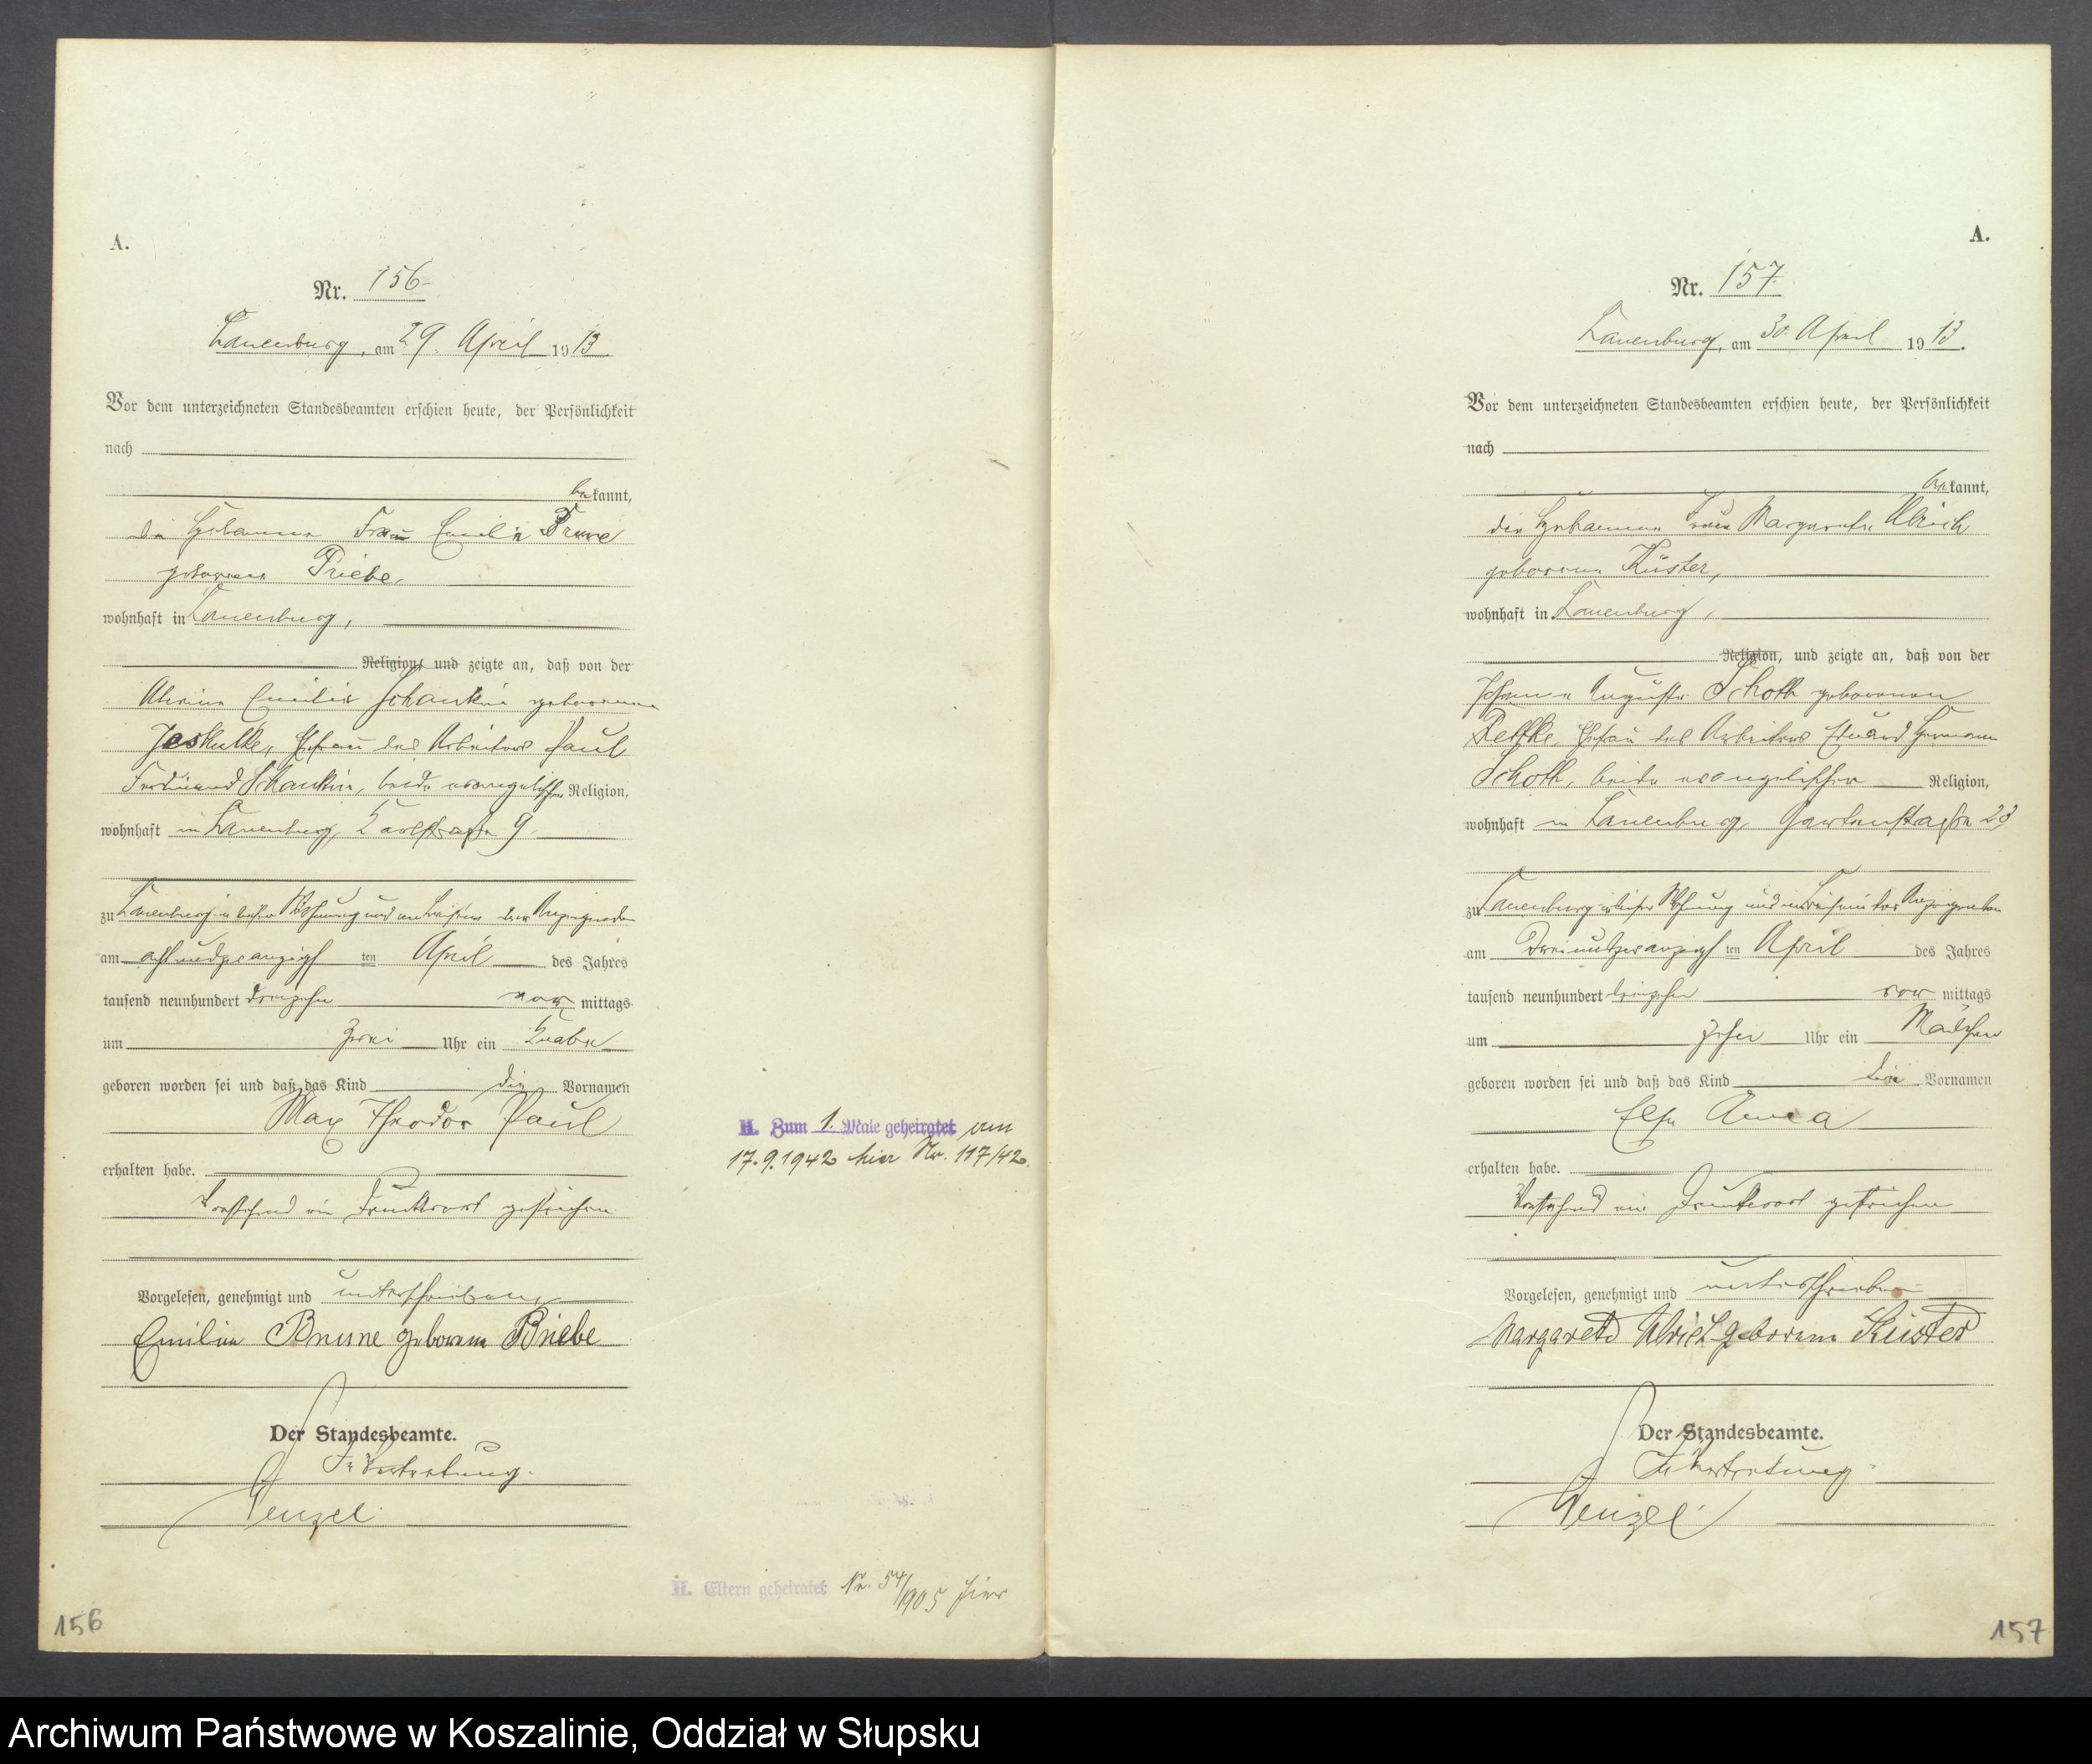 A.
Nr. 156.
Lauenburg, am 29. April 1913.
Vor dem unterzeichneten Standesbeamten erschien heute, der Persönlichkeit
nach
bekannt,
die Hebamme Frau Emilie Brune
geborene Priebe,
wohnhaft in Lauenburg,
Religion, und zeigte an, daß von der
Emilie Schankin geborenen
Jeskulke, Ehefrau des Arbeiters Paul
Ferdinand Schankin, beide evangelischer Religion,
wohnhaft in Lauenburg, Karlstraße 9.
zu Lauenburg in dieser Wohnung und im Beisein der Anzeigenden
am achtundzwanzigsten April des Jahres
tausend neunhundert dreizehn vormittags
um zwei Uhr ein Knabe
geboren worden sei und daß das Kind die Vornamen
Max Theodor Paul
erhalten habe.
Vorstehend ein Druckwort gestrichen.
Vorgelesen, genehmigt und unterschrieben
Emilie Brune geborene Priebe
Der Standesbeamte.
In Vertretung.
Wenzel.
156
H. Zum 1. Male geheiratet am
17.9.1942 hier Nr. 117/42.
H. Eltern geheiratet Nr. 54/1905 hier
A.
Nr. 157.
Lauenburg, am 30. April 1913.
Vor dem unterzeichneten Standesbeamten erschien heute, der Persönlichkeit
nach
bekannt,
die Hebamme Frau Margarete Ulrich
geborene Küster,
wohnhaft in Lauenburg,
Religion, und zeigte an, daß von der
Auguste Schoth geborenen
Ehefrau des Arbeiters Eduard Hermann
Schoth, beide evangelischer Religion,
wohnhaft in Lauenburg, Gartenstraße 23
zu Lauenburg in dieser Wohnung und im Beisein der Anzeigenden
am dreiundzwanzigsten April des Jahres
tausend neunhundert dreizehn vormittags
um zehn Uhr ein Mädchen
geboren worden sei und daß das Kind die Vornamen
Else Anna
erhalten habe.
Vorstehend ein Druckwort gestrichen
Vorgelesen, genehmigt und unterschrieben
Margarete Ulrich geborene Küster
Der Standesbeamte.
In Vertretung.
Wenzel.
157
Archiwum Państwowe w Koszalinie, Oddział w Słupsku